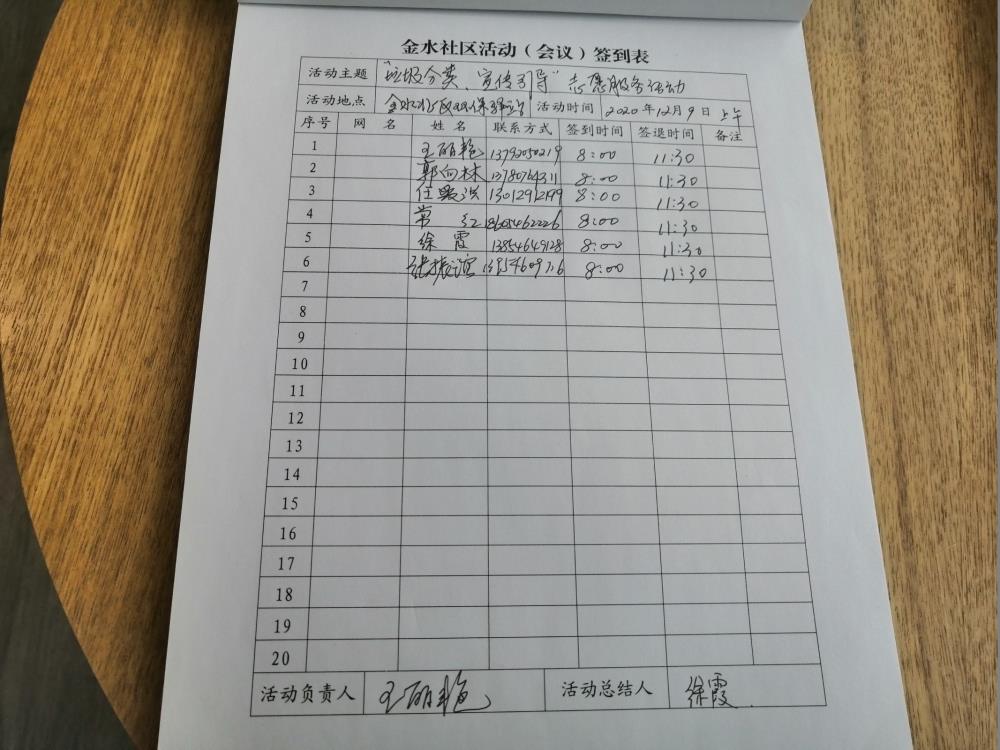 金水社区活动（会议）签到表
活动主题 “垃圾分类、宣传引导”志愿服务活动
活动地点 金水社区 活动时间 2020年12月9日上午
序号 网 名 姓 名 联系方式 签到时间 签退时间 备注
1 王丽艳 13792050219 8:00 11:30
2 郭向林 13780764311 8:00 11:30
3 13012912199 8:00 11:30
4 常 红 18605462226 8:00 11:30
5 徐 霞 13854649128 8:00 11:30
6 张振谊 8:00 11:30
7
8
9
10
11
12
13
14
15
16
17
18
19
20
活动负责人 王丽艳 活动总结人 徐霞